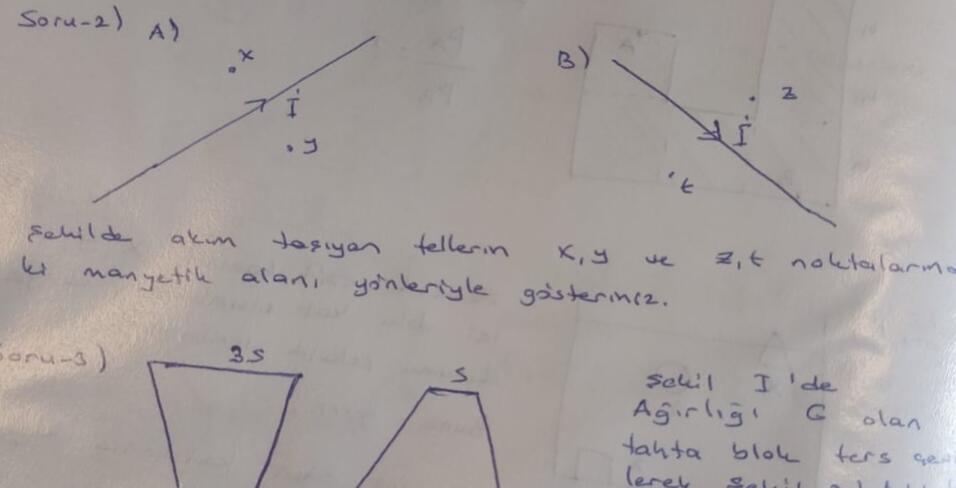 Soru-2) A)
x
İ
y
B)
z
İ
t
Şekilde akım taşıyan tellerin x, y ve z, t noktalarında
ki manyetik alanı yönleriyle gösteriniz.
Soru-3)
3S
S
Şekil I'de
Ağırlığı G olan
tahta blok ters
lerek